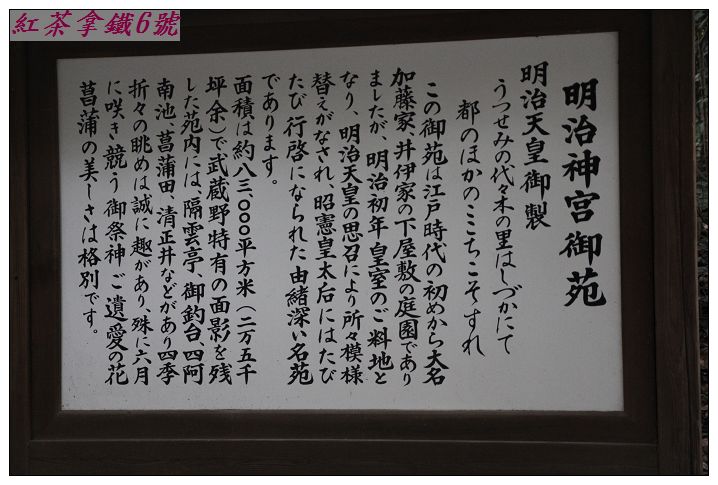 紅茶拿鐵6號
明治神宮御苑
明治天皇御製
うつせみの代々木の里はしづかにて
都のほかのここちこそすれ
この御苑は江戸時代の初めから大名
加藤家、井伊家の下屋敷の庭園であり
ましたが、明治初年皇室のご料地と
なり、明治天皇の思召により所々模様
替えがなされ、昭憲皇太后にはたび
たび行啓になられた由緒深い名苑
であります。
面積は約八三、〇〇〇平方米(二万五千
坪余)で武蔵野特有の面影を残
した苑内には、隔雲亭、御釣台、四阿
南池、菖蒲田、清正井などがあり四季
折々の眺めは誠に趣があり、殊に六月
に咲き競う御祭神ご遺愛の花
菖蒲の美しさは格別です。